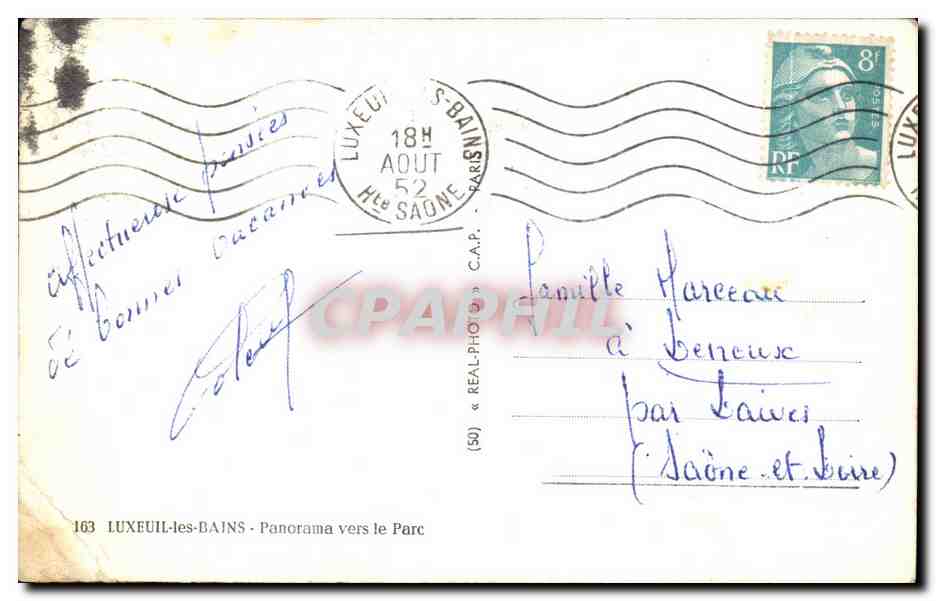 LUXEUIL-LES-BAINS
18H
AOUT
52
Hte SAONE
8f
POSTES
RF
LUXEU
affectueuse pensées
de bonnes vacances
Famille Marceau
à Leneux
par Laives
(Saône-et-Loire)
(50) « REAL-PHOTO » C.A.P. - PARIS
CPAPHIL
163 LUXEUIL-les-BAINS - Panorama vers le Parc